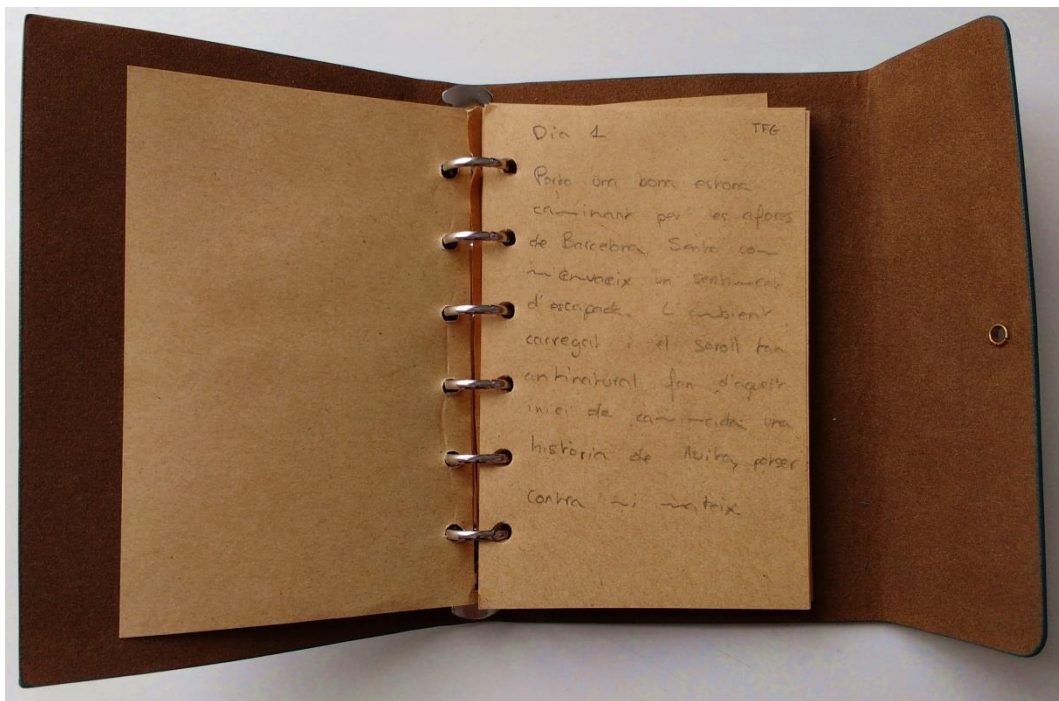 Dia 1 TFG
Porto una bona estona
caminant per les afores
de Barcelona. Sento com
m'envaeix un sentiment
d'escapada. L'ambient
carregat i el soroll tan
antinatural fan d'aquest
inici de caminada una
història de lluita, potser
contra mi mateix